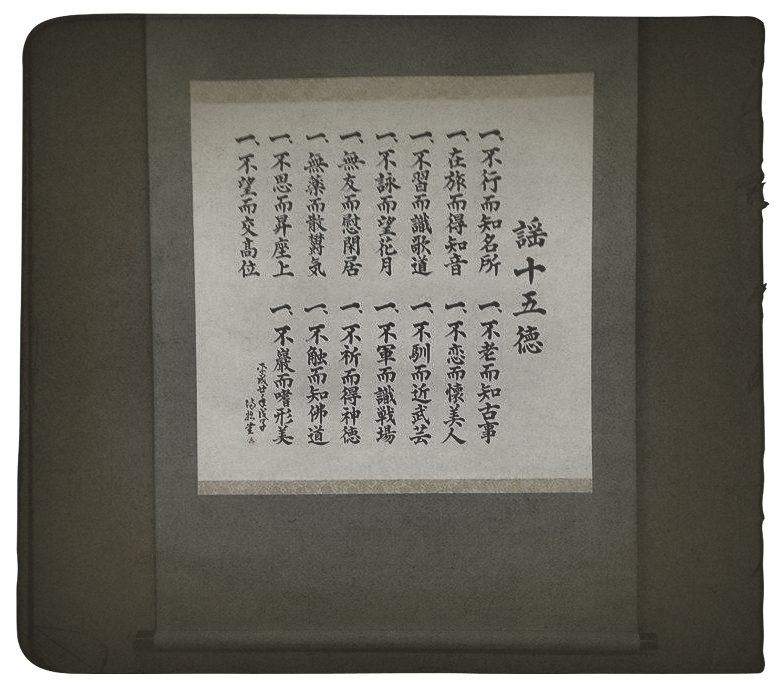 謡十五徳
一、不行而知名所
一、在旅而得知音
一、不習而識歌道
一、不詠而望花月
一、無友而慰閑居
一、無薬而散欝気
一、不思而昇座上
一、不望而交高位
一、不老而知古事
一、不恋而懐美人
一、不馴而近武芸
一、不軍而識戦場
一、不祈而得神徳
一、不触而知佛道
一、不嚴而嗜形美